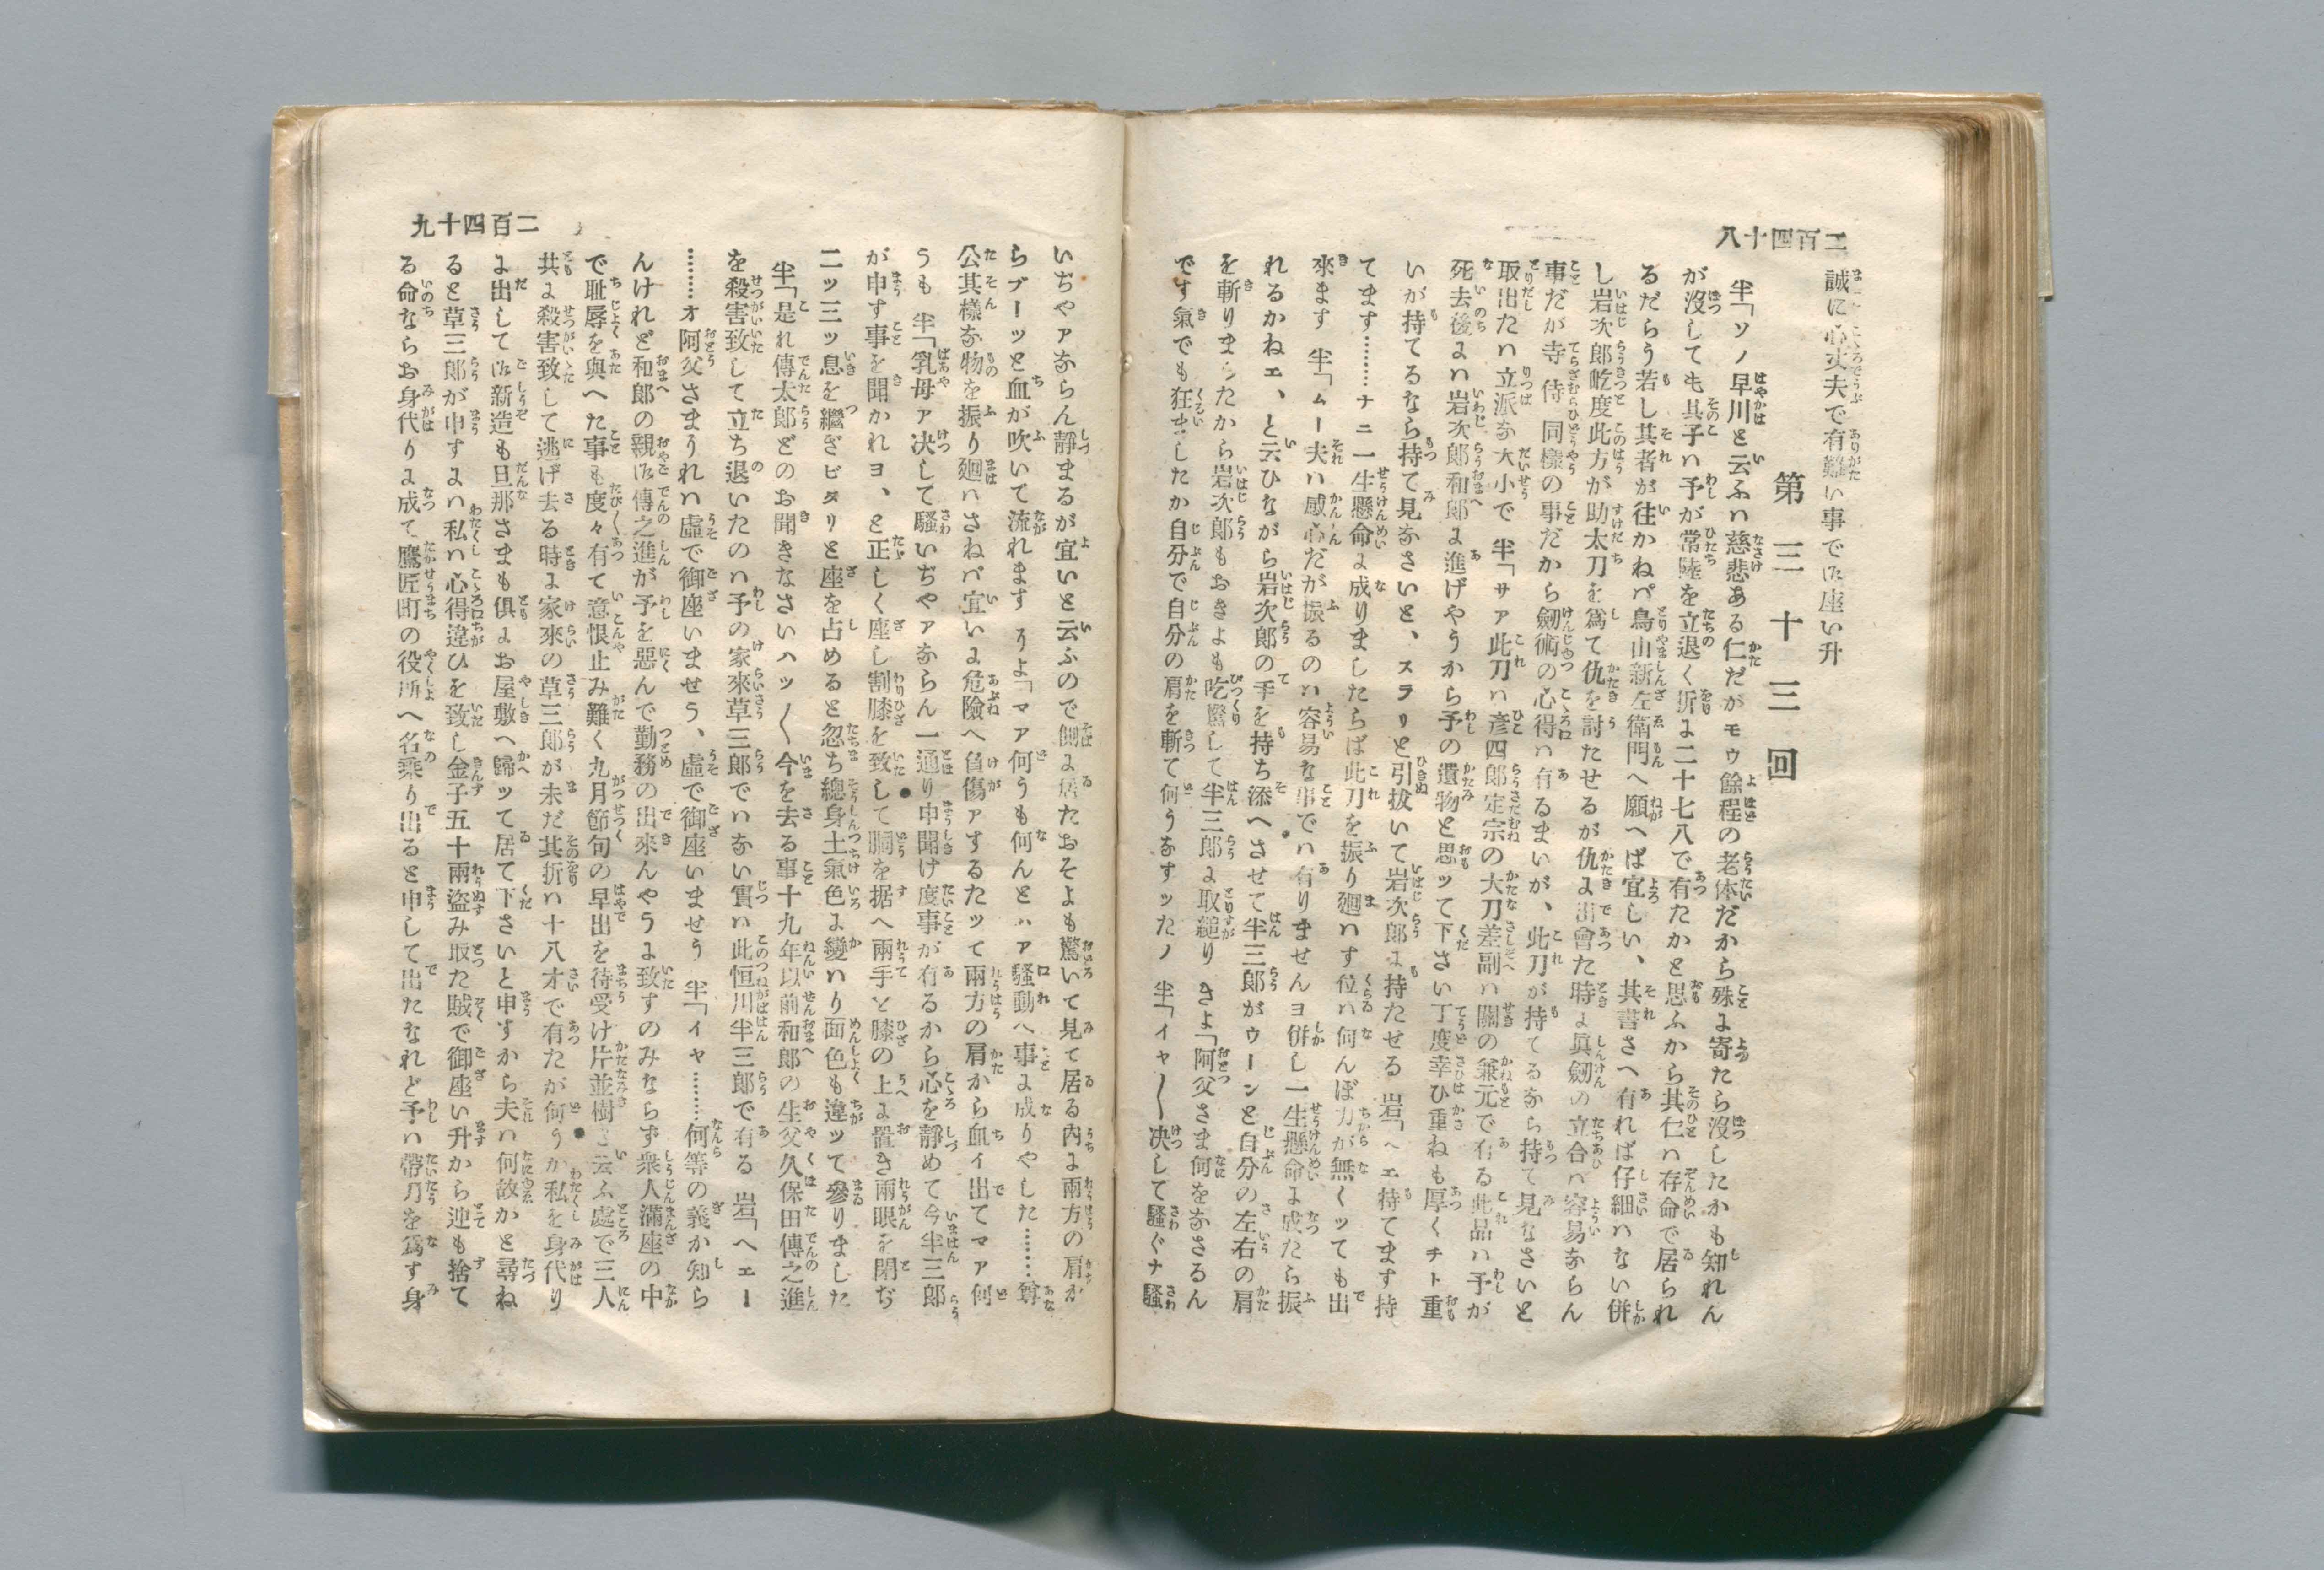 二百四十八
誠に心丈夫で有難い事で御座い升
第三十三回
半「ソノ早川と云ふハ慈悲ある仁だがモウ餘程の老体だから殊に寄たら沒したかも知れん
が沒しても其子ハ予が常陸を立退く折に二十七八で有たかと思ふから其仁ハ存命で居られ
るだらう若し其者が往かねバ鳥山新左衛門へ願へば宜しい、其書さへ有れば仔細ハない併
し岩次郎屹度此方が助太刀を爲て仇を討たせるが仇に出會た時に眞劔の立合ハ容易あらん
事だが寺侍同樣の事だから劔術の心得ハ有るまいが、此刀が持てるあら持て見なさいと
取出たハ立派な大小で 半「サア此刀ハ彦四郎定宗の大刀差副ハ關の兼元で有る此品ハ予が
死去後にハ岩次郎和郎に進げやうから予の遺物と思ッて下さい丁度幸ひ重ねも厚くチト重
いが持てるなら持て見なさいと、スラリと引拔いて岩次郎に持たせる 岩「ヘエ持てます持
てます………ナニ一生懸命に成りましたらば此刀を振り廻ハす位ハ何んぼ力が無くッても出
來ます 半「ムー夫ハ感心だが振るのハ容易な事でハ有りませんヨ併し一生懸命に成たら振
れるかねエ、と云ひながら岩次郎の手を持ち添へさせて半三郎がウーンと自分の左右の肩
を斬りましたから岩次郎もおきよも吃驚して半三郎に取縋り きよ「阿父さま何をなさるん
です氣でも狂ましたか自分で自分の肩を斬て何うなすッたノ 半「イヤ〱决して騷ぐナ騷
二百四十九
いぢやアならん靜まるが宜いと云ふので側に居たおそよも驚いて見て居る内に兩方の肩か
らブーッと血が吹いて流れます そよ「マア何うも何んとハア騷動へ事に成りやした………尊
公其樣な物を振り廻ハさねバ宜いに危險へ負傷アするたッて兩方の肩から血イ出てマア何
うも 半「乳母ア决して騷いぢやアならん一通り申聞け度事が有るから心を靜めて今半三郎
が申す事を聞かれヨ、と正しく座し割膝を致して胴を据へ兩手を膝の上に置き兩眼を閉ぢ
二ッ三ッ息を繼ぎピタリと座を占めると忽ち總身土氣色に變ハり面色も違ッて參りました
半「是れ傳太郎どのお聞きなさいハッ〱今を去る事十九年以前和郎の生父久保田傳之進
を殺害致して立ち退いたのハ予の家來草三郎でハない實ハ此恒川半三郎で有る 岩「ヘエー
………オ阿父さまうれハ虛で御座いませう、虛で御座いませう 半「イヤ………何等の義か知ら
んけれど和郎の親御傳之進が予を惡んで勤務の出來んやうに致すのみならず衆人滿座の中
で耻辱を與へた事も度々有て意恨止み難く九月節句の早出を待受け片並樹と云ふ處で三人
共に殺害致して逃げ去る時に家來の草三郎が未だ其折ハ十八才で有たが何うか私を身代り
に出して御新造も旦那さまも俱にお屋敷へ歸ッて居て下さいと申すから夫ハ何故かと尋ね
ると草三郎が申すにハ私ハ心得違ひを致し金子五十兩盜み取た賊で御座い升から迚も捨て
る命ならお身代りに成て鷹匠町の役所へ名乘り出ると申して出たなれど予ハ帶刀を爲す身